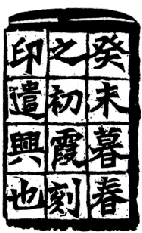 癸未暮春
之初霞刻
印遣興也